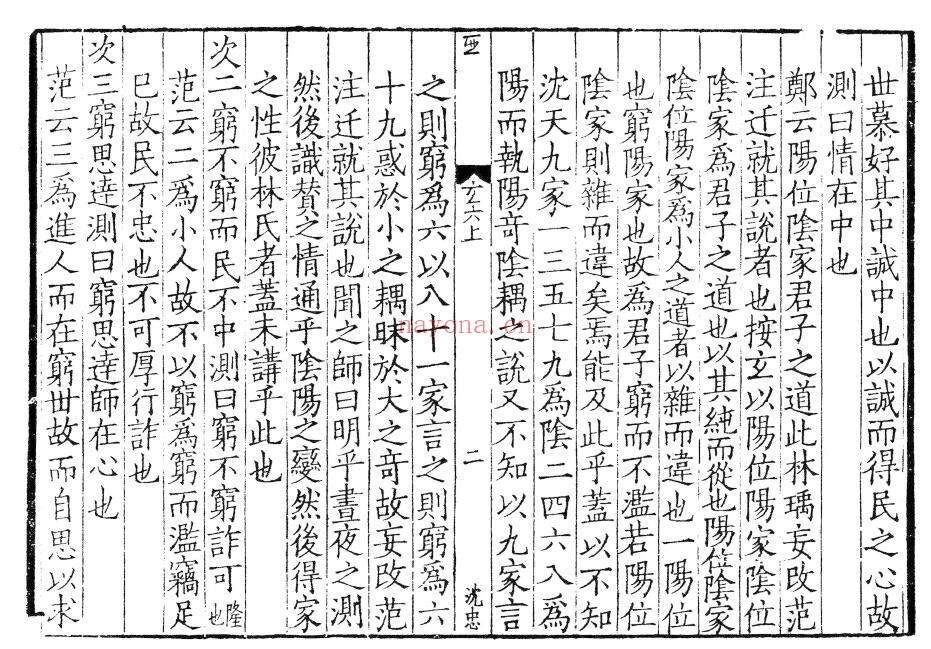 世慕好其中誠中也以誠而得民之心故
測曰情在中也
鄭云陽位陰家君子之道此林瑀妄改范
注迁就其說者也按玄以陽位陽家陰位
陰家爲君子之道也以其純而從也陽位陰家
陰位陽家爲小人之道者以雜而違也一陽位
也窮陽家也故爲君子窮而不濫若陽位
陰家則雜而違矣焉能及此乎蓋以不知
沈天九家一三五七九爲陰二四六八爲
陽而執陽竒陰耦之說又不知以九家言
亞
玄六上
二
沈忠
之則窮爲六以八十一家言之則窮爲六
十九惑於小之耦昧於大之竒故妄改范
注迁就其說也聞之師曰明乎晝夜之測
然後識贊之情通乎陰陽之變然後得家
之性彼林氏者蓋未講乎此也
次二窮不窮而民不中測曰窮不窮詐可隆也
范云二爲小人故不以窮爲窮而濫竊足
巳故民不忠也不可厚行詐也
次三窮思達測曰窮思達師在心也
范云三爲進人而在窮世故而自思以求
nayona.cn